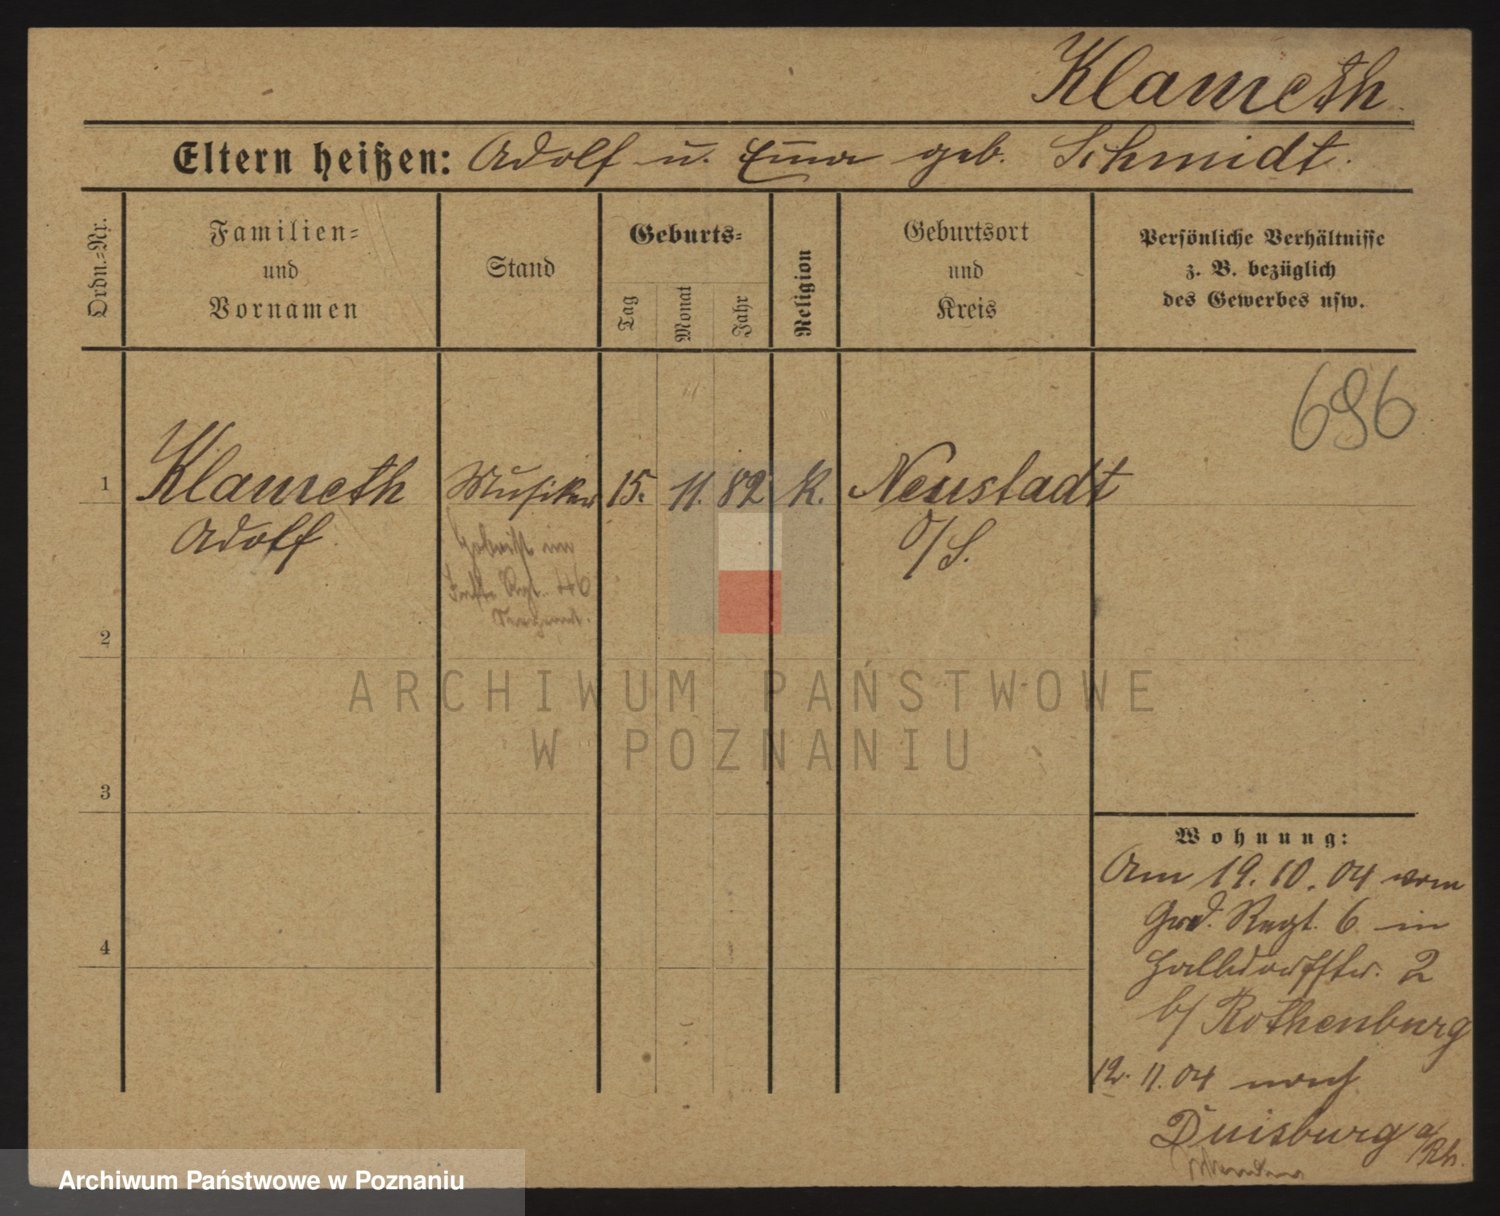 Klameth
Eltern heißen: Adolf u. Em̄a geb. Schmidt.
Ordn.-Nr.
Familien-
und
Vornamen
Stand
Geburts-
Tag
Monat
Jahr
Religion
Geburtsort
und
Kreis
Persönliche Verhältnisse
z. B. bezüglich
des Gewerbes usw.
696
1 Klameth Musiker 15. 11. 82 K. Neustadt
Adolf O/S.
im
Rgt. 46
2
3
4
ARCHIWUM PAŃSTWOWE
W POZNANIU
Wohnung:
Am 19. 10. 04 vom
Grd. Regt. 6 in
2
b/ Rothenburg
12. 11. 04 nach
Duisburg a/Rh.
Archiwum Państwowe w Poznaniu